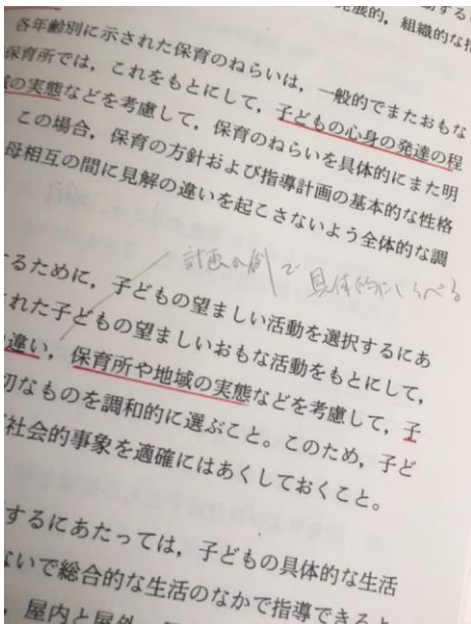 発展的，組織的な指
各年齢別に示された保育のねらいは，一般的でまたおもな
保育所では，これをもとにして，子どもの心身の発達の程
の実態などを考慮して，保育のねらいを具体的にまた明
この場合，保育の方針および指導計画の基本的な性格
母相互の間に見解の違いを起こさないよう全体的な調
計画の例で 具体的にしらべる
するために，子どもの望ましい活動を選択するにあ
れた子どもの望ましいおもな活動をもとにして，
違い，保育所や地域の実態などを考慮して，子
切なものを調和的に選ぶこと。このため，子ど
社会的事象を適確にはあくしておくこと。
するにあたっては，子どもの具体的な生活
ないで総合的な生活のなかで指導できるよ
，屋内と屋外，